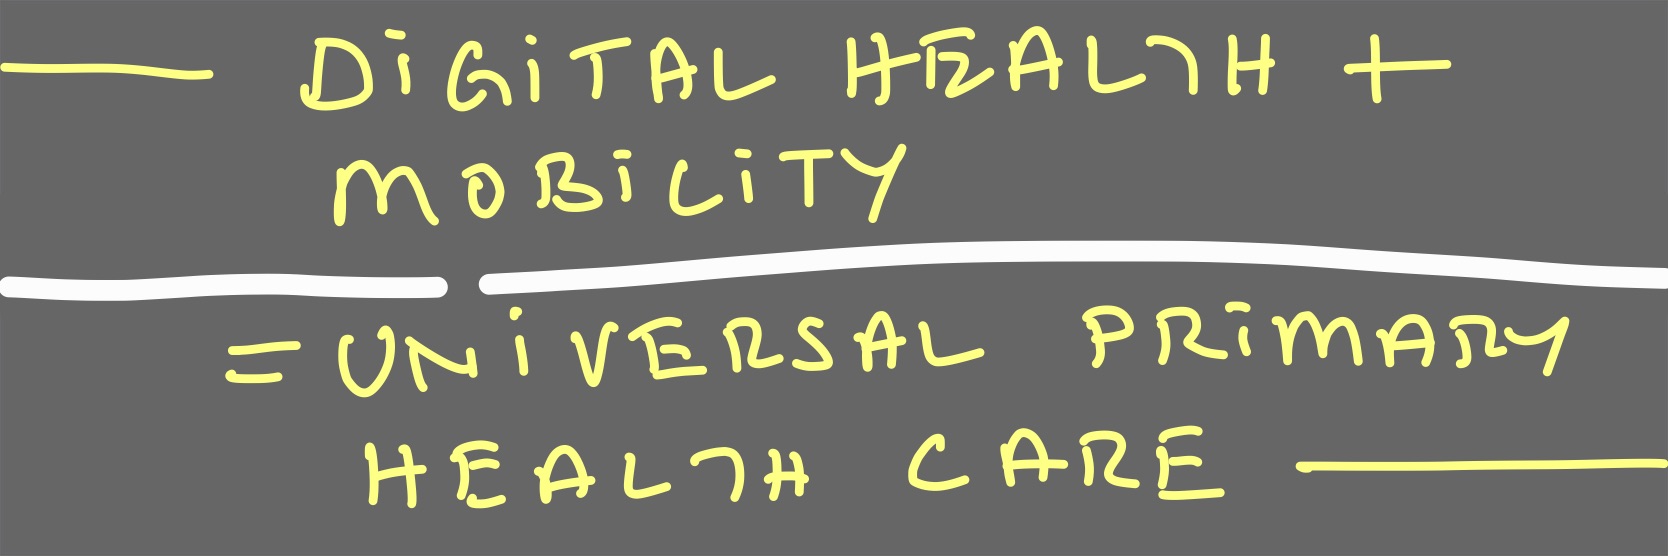 DiGiTAL HEALTH +
MOBiLiTY
= UNiVERSAL PRiMARY
HEALTH CARE